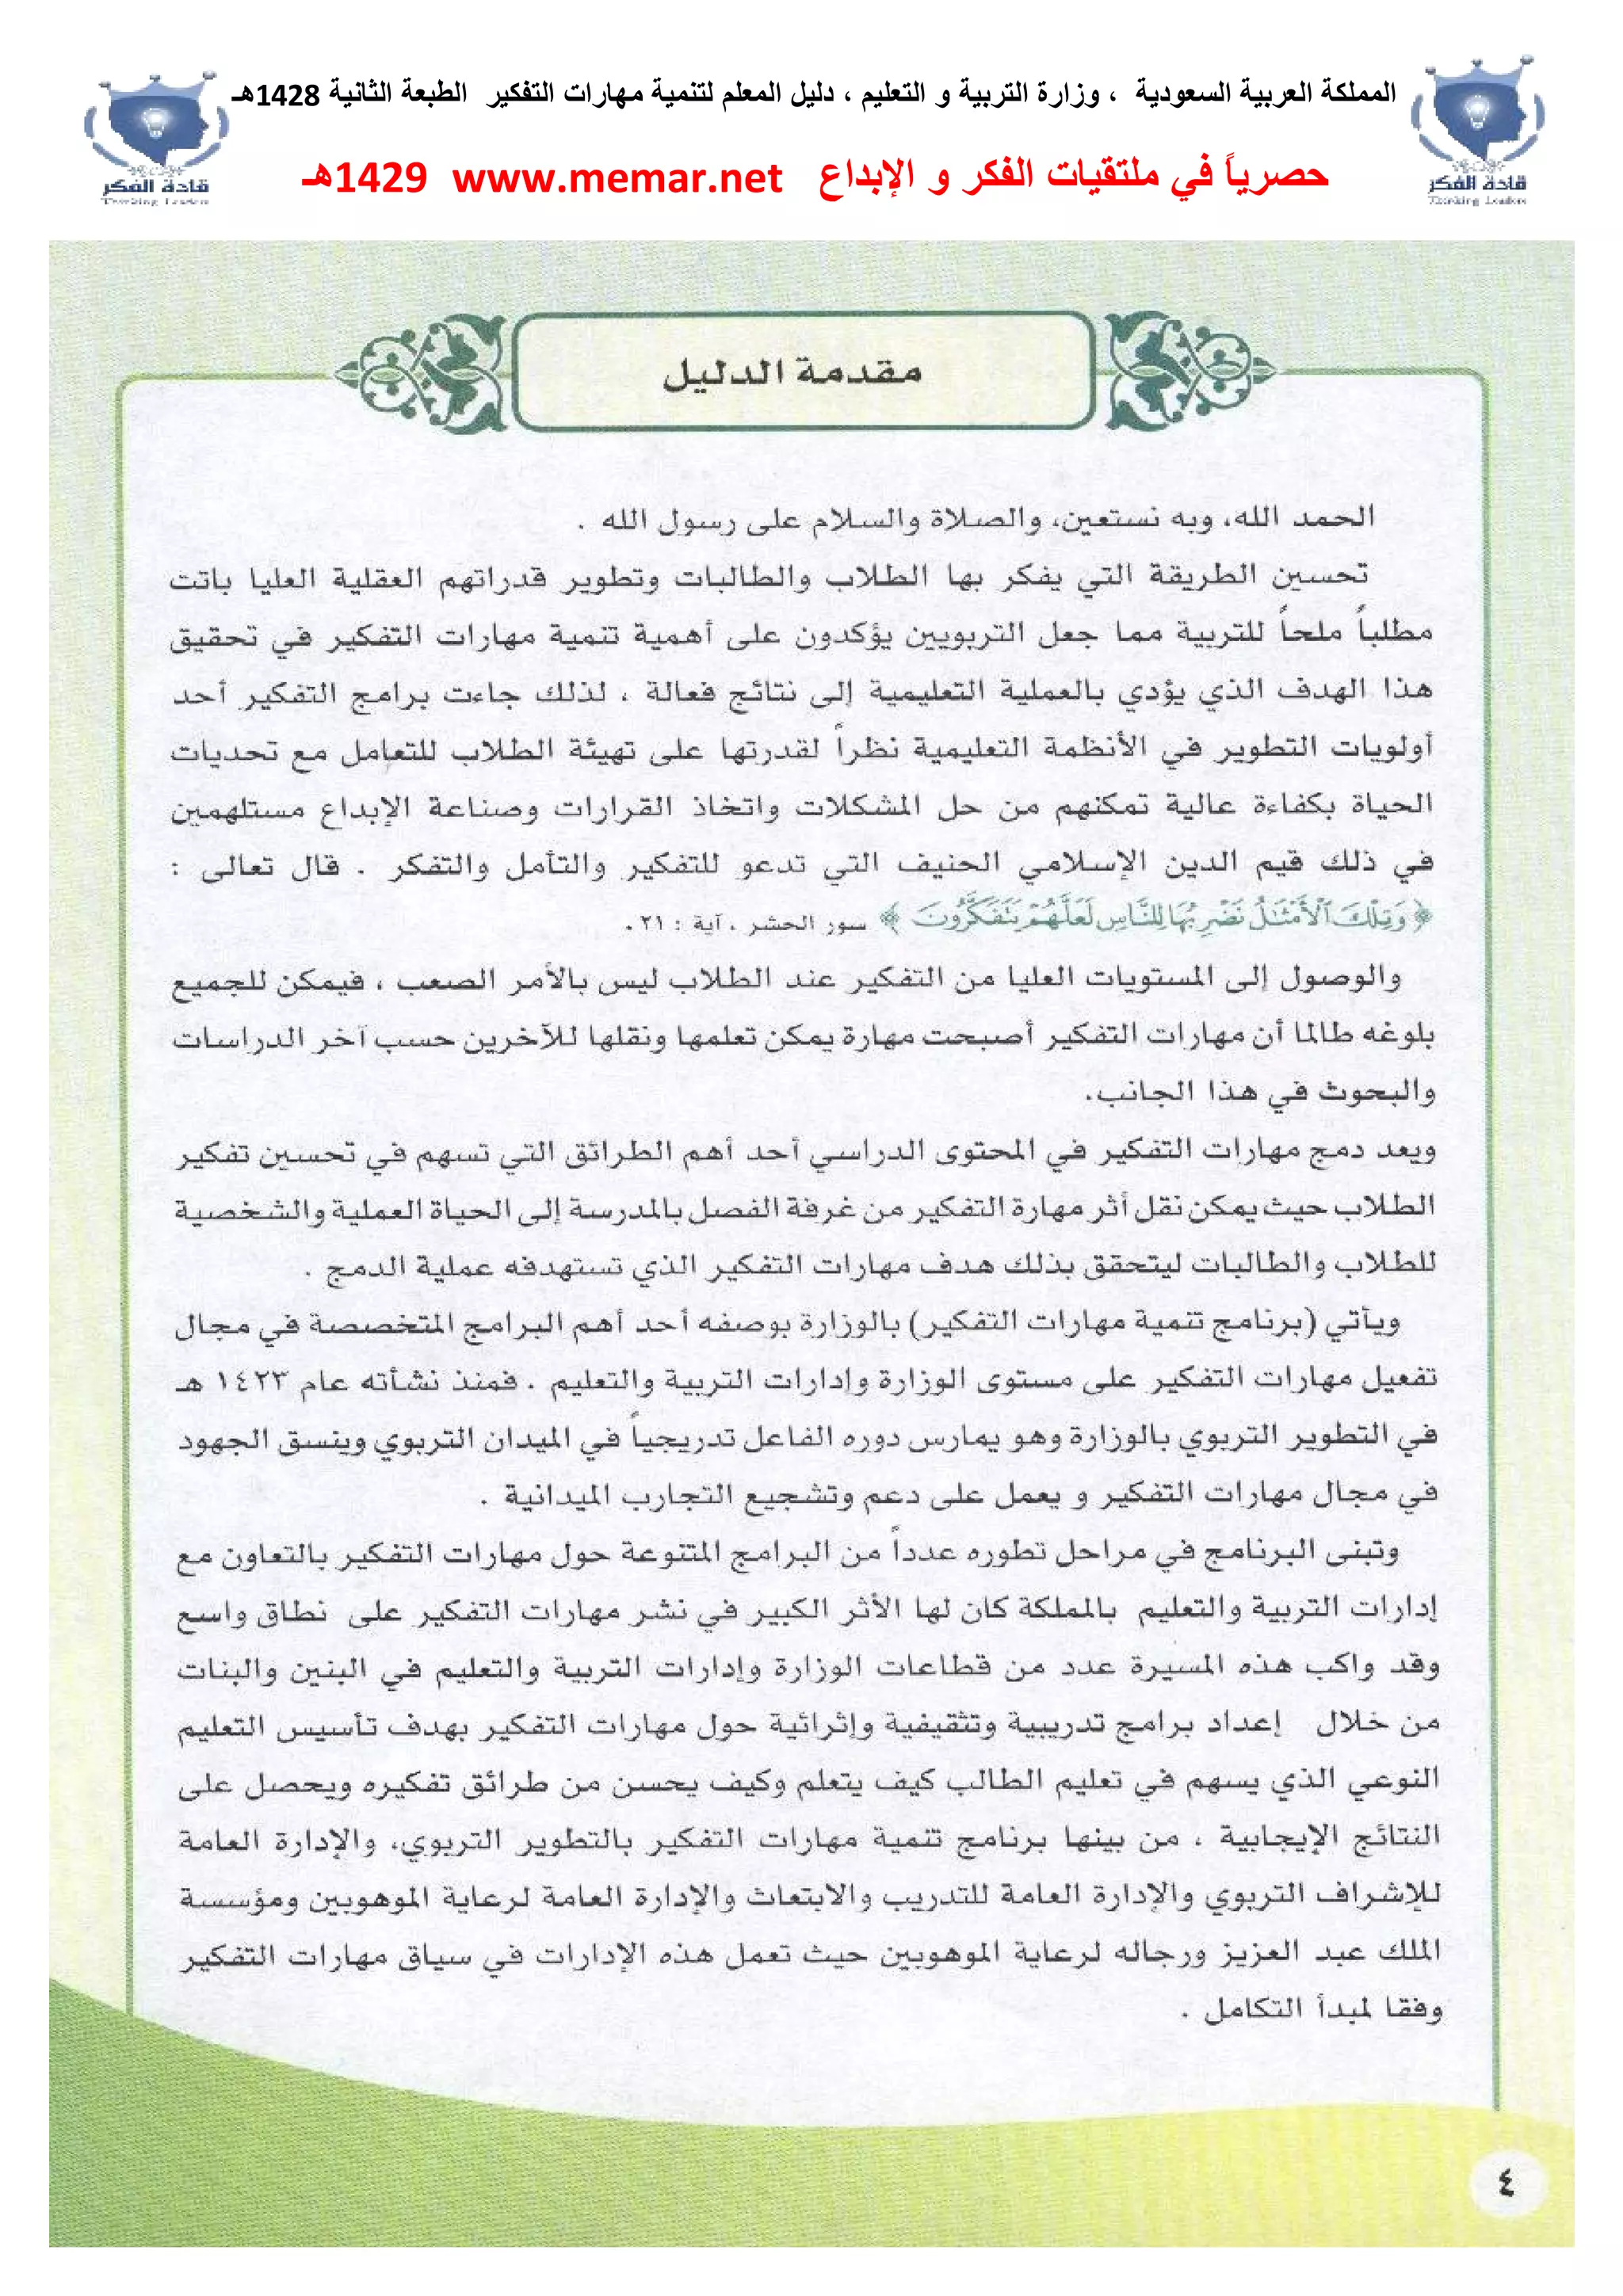 المملكة العربية السعودية ، وزارة التربية و التعليم ، دليل المعلم لتنمية مهارات التفكير الطبعة الثانية 1428هـ
حصرياً في ملتقيات الفكر و الإبداع www.memar.net 1429هـ
قادة الفكر
Thinking Leaders
قادة الفكر
Thinking Leaders
مقدمة الدليل
الحمد الله، وبه نستعين، والصلاة والسلام على رسول الله .
تحسين الطريقة التي يفكر بها الطلاب والطالبات وتطوير قدراتهم العقلية العليا باتت
مطلباً ملحاً للتربية مما جعل التربويين يؤكدون على أهمية تنمية مهارات التفكير في تحقيق
هذا الهدف الذي يؤدي بالعملية التعليمية إلى نتائج فعالة ، لذلك جاءت برامج التفكير أحد
أولويات التطوير في الأنظمة التعليمية نظراً لقدرتها على تهيئة الطلاب للتعامل مع تحديات
الحياة بكفاءة عالية تمكنهم من حل المشكلات واتخاذ القرارات وصناعة الإبداع مستلهمين
في ذلك قيم الدين الإسلامي الحنيف التي تدعو للتفكير والتأمل والتفكر . قال تعالى :
﴿ وَتِلْكَ ٱلْأَمْثَٰلُ نَضْرِبُهَا لِلنَّاسِ لَعَلَّهُمْ يَتَفَكَّرُونَ ﴾ سور الحشر ، آية : ٢١ .
والوصول إلى المستويات العليا من التفكير عند الطلاب ليس بالأمر الصعب ، فيمكن للجميع
بلوغه طالما أن مهارات التفكير أصبحت مهارة يمكن تعلمها ونقلها للآخرين حسب آخر الدراسات
والبحوث في هذا الجانب.
ويعد دمج مهارات التفكير في المحتوى الدراسي أحد أهم الطرائق التي تسهم في تحسين تفكير
الطلاب حيث يمكن نقل أثر مهارة التفكير من غرفة الفصل بالمدرسة إلى الحياة العملية والشخصية
للطلاب والطالبات ليتحقق بذلك هدف مهارات التفكير الذي تستهدفه عملية الدمج .
ويأتي (برنامج تنمية مهارات التفكير) بالوزارة بوصفه أحد أهم البرامج المتخصصة في مجال
تفعيل مهارات التفكير على مستوى الوزارة وإدارات التربية والتعليم . فمنذ نشأته عام ١٤٢٣ هـ
في التطوير التربوي بالوزارة وهو يمارس دوره الفاعل تدريجياً في الميدان التربوي وينسق الجهود
في مجال مهارات التفكير و يعمل على دعم وتشجيع التجارب الميدانية .
وتبنى البرنامج في مراحل تطوره عدداً من البرامج المتنوعة حول مهارات التفكير بالتعاون مع
إدارات التربية والتعليم بالمملكة كان لها الأثر الكبير في نشر مهارات التفكير على نطاق واسع
وقد واكب هذه المسيرة عدد من قطاعات الوزارة وإدارات التربية والتعليم في البنين والبنات
من خلال إعداد برامج تدريبية وتثقيفية وإثرائية حول مهارات التفكير بهدف تأسيس التعليم
النوعي الذي يسهم في تعليم الطالب كيف يتعلم وكيف يحسن من طرائق تفكيره ويحصل على
النتائج الإيجابية ، من بينها برنامج تنمية مهارات التفكير بالتطوير التربوي، والإدارة العامة
للإشراف التربوي والإدارة العامة للتدريب والابتعاث والإدارة العامة لرعاية الموهوبين ومؤسسة
الملك عبد العزيز ورجاله لرعاية الموهوبين حيث تعمل هذه الإدارات في سياق مهارات التفكير
وفقا لمبدأ التكامل .
٤